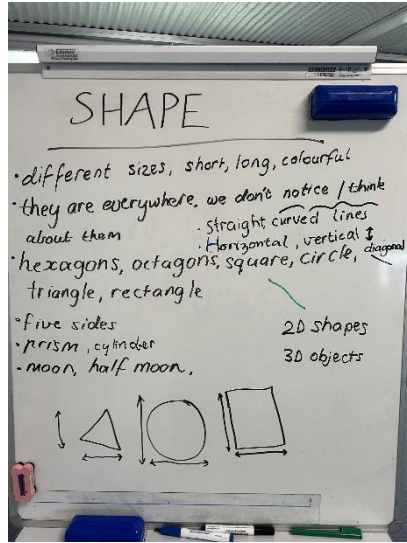 SHAPE
• different sizes, short, long, colourful
• they are everywhere, we don't notice / think
about them
• straight, curved lines
• Horizontal, vertical ↕
diagonal
• hexagons, octagons, square, circle,
triangle, rectangle
• five sides
• prism, cylinder
• moon, half moon,
2D shapes
3D objects